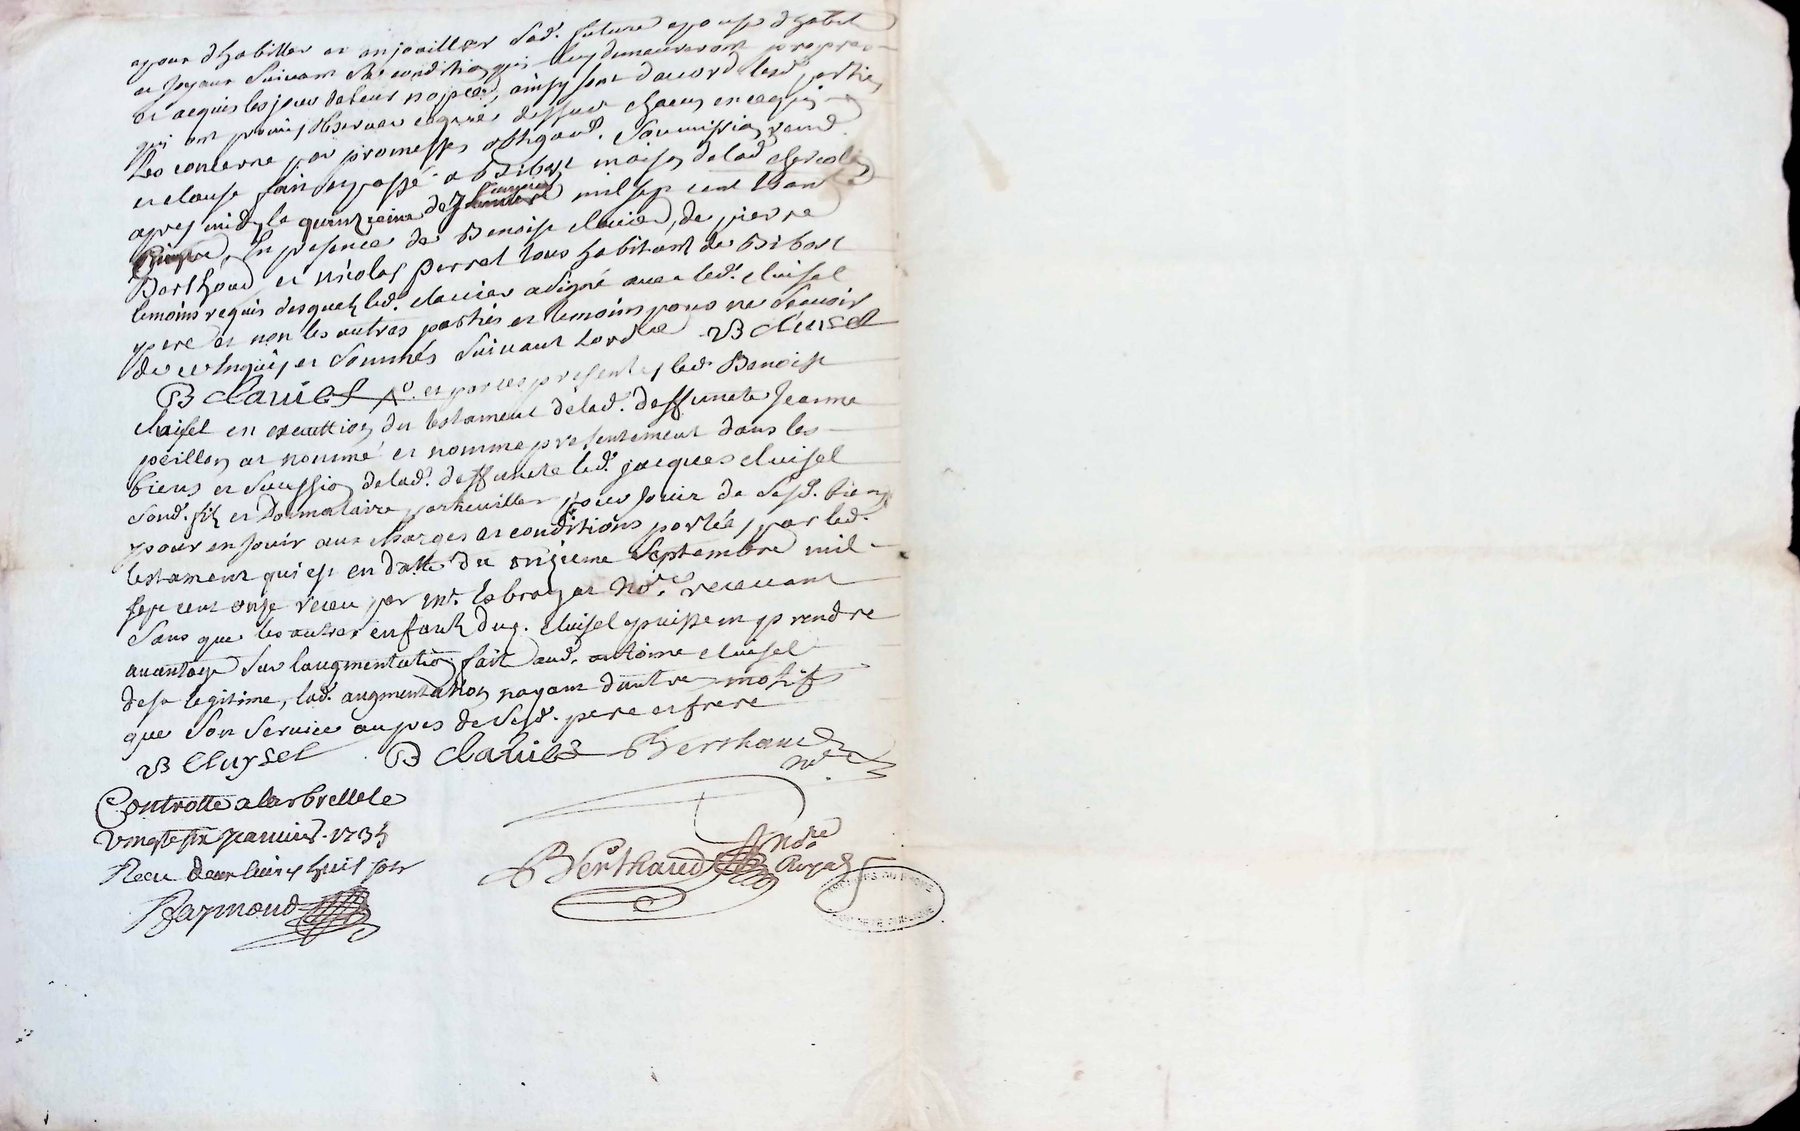 epoux d'habiller et enjoailler sad. future epouse d'habits
et joyaux suivant sa condition qui luy demeureront propres
et acquis les jours de leurs nopces, ainsy sont d'acord lesd. parties
qui ont promis observer ce que dessus chacun en ce qui
les concerne par promesses obligaons. soumissions renons.
et clause fait et passé a Bibost maison de lad.
apres midy le quinzieme de janvier mil sept cent trante
cinq, en presence de Benoist clavier, de pierre
Berthoud et nicolas perret tous habitant de Bibost
temoins requis desquels led. clavier a signé avec led. cluisel
pere et non les autres parties et temoins pour ne scavoir
de ce enquis et sommés suivant lord.ce B Cluisel
B Clavier et par ces presentes led. Benoist
cluisel en executtion du testament de lad. deffuncte Jeanne
peillon at nommé et nomme presentement dans les
biens et sucession de lad. deffuncte led. jacques cluisel
sond. fils et donnataire pour jouir de sesd. biens
pour en jouir aux charges et conditions portées par led.
testament qui est en datte du onzieme septembre mil
sept cent onze receu par mr. no.re recevant
sans que les autres enfants dud. cluisel puissent prendre
avantage sur l'augmentation fait aud. antoine cluisel
de sa legitime, lad. augmentation nayant d'autre motifs
que son service aupres de sesd. pere et frere
B Cluysel B Clavier Berthaud
no.re
Controllé a larbrelle le
vingt six janvier 1735
Receu deux livres huit sols
Raymond
Berthaud no.re
Royal